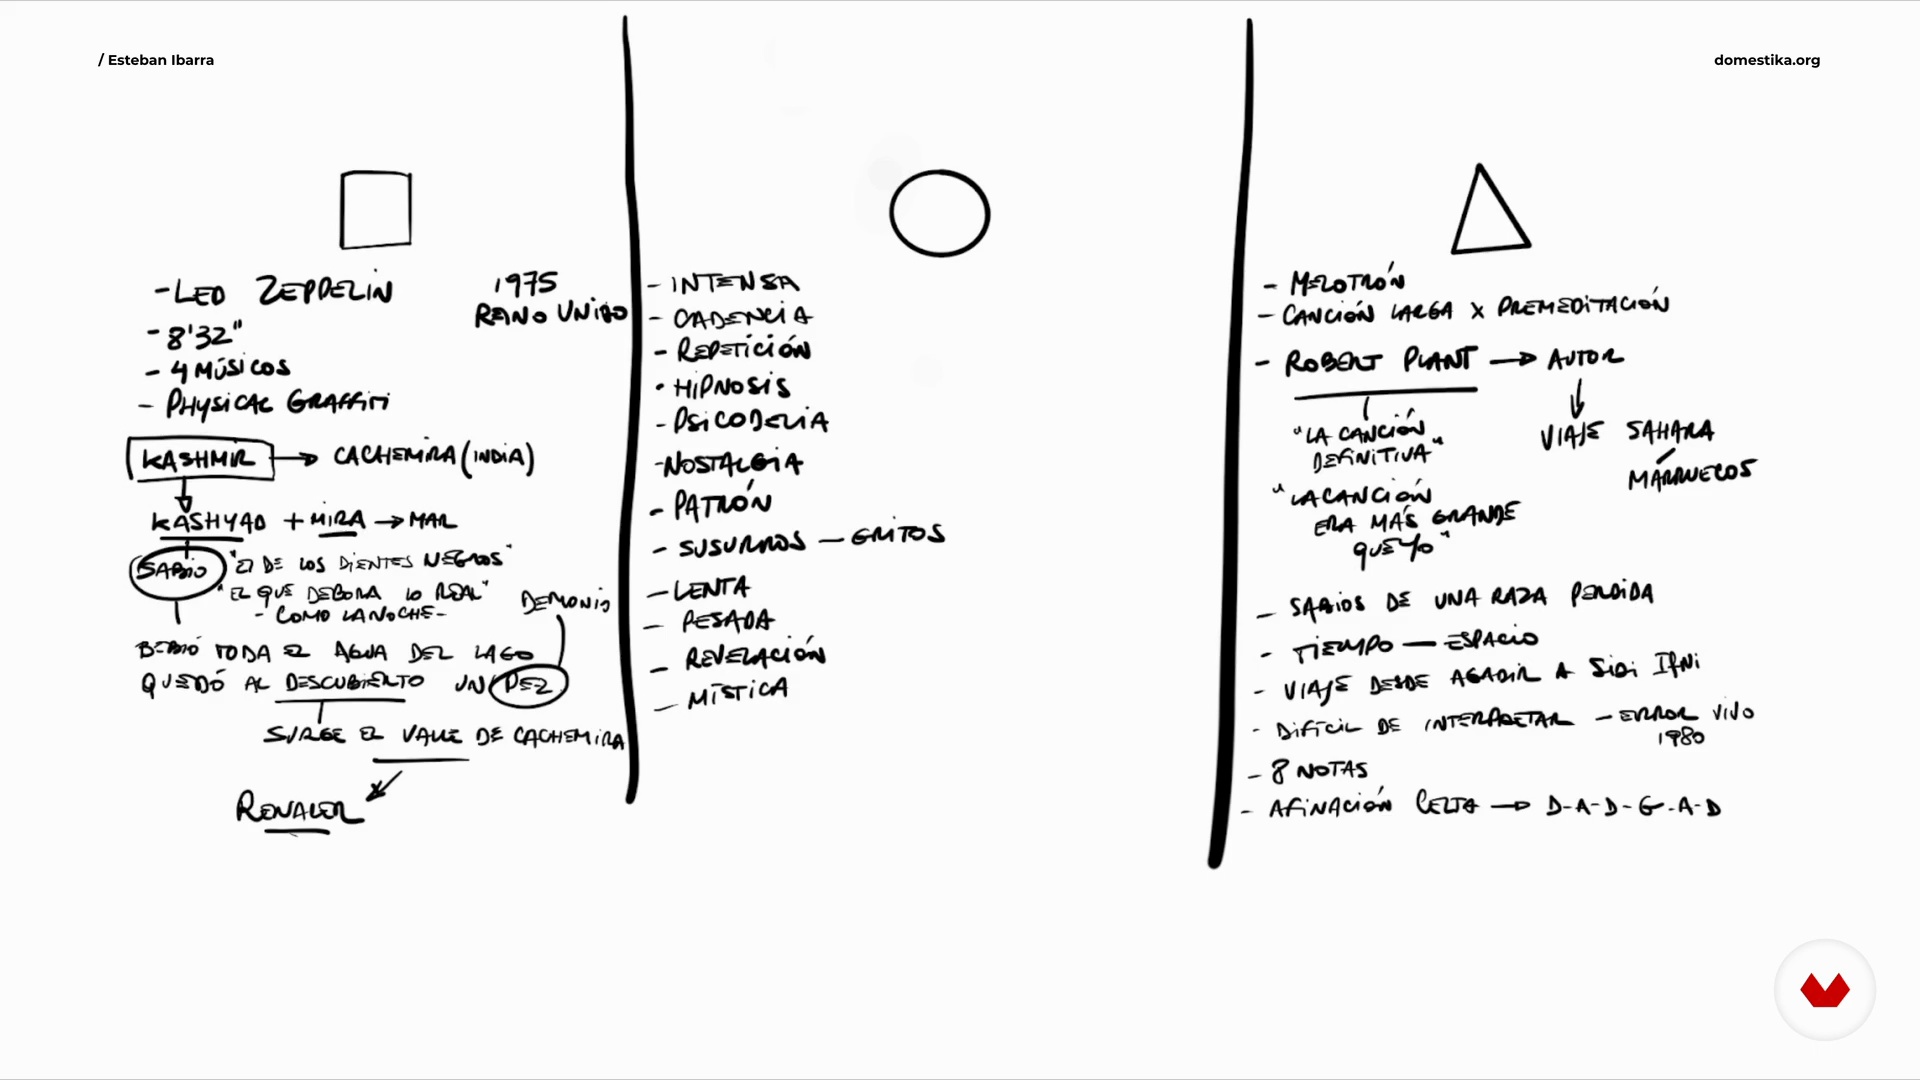 / Esteban Ibarra
domestika.org
- LED ZEPPELIN
1975
REINO UNIDO
- 8'32"
- 4 MÚSICOS
- PHYSICAL GRAFFITI
KASHMIR → CACHEMIRA (INDIA)
KASHYAP + MIRA → MAR
SABIO
"EL DE LOS DIENTES NEGROS"
"EL QUE DEVORA LO REAL"
- COMO LA NOCHE -
DEMONIO
BEBIÓ TODA EL AGUA DEL LAGO
QUEDÓ AL DESCUBIERTO UN PEZ
SURGE EL VALLE DE CACHEMIRA
RENACER
- INTENSA
- CADENCIA
- REPETICIÓN
- HIPNOSIS
- PSICODELIA
- NOSTALGIA
- PATRÓN
- SUSURROS — GRITOS
- LENTA
- PESADA
- REVELACIÓN
- MÍSTICA
- MELOTRÓN
- CANCIÓN LARGA X PREMEDITACIÓN
- ROBERT PLANT → AUTOR
"LA CANCIÓN
DEFINITIVA"
VIAJE SAHARA
MARRUECOS
"LA CANCIÓN
ERA MÁS GRANDE
QUE YO"
- SABIOS DE UNA RAZA PERDIDA
- TIEMPO — ESPACIO
- VIAJE DESDE AGADIR A SIDI IFNI
- DIFÍCIL DE INTERPRETAR - ERROR VIVO
1980
- 8 NOTAS
- AFINACIÓN CELTA → D-A-D-G-A-D